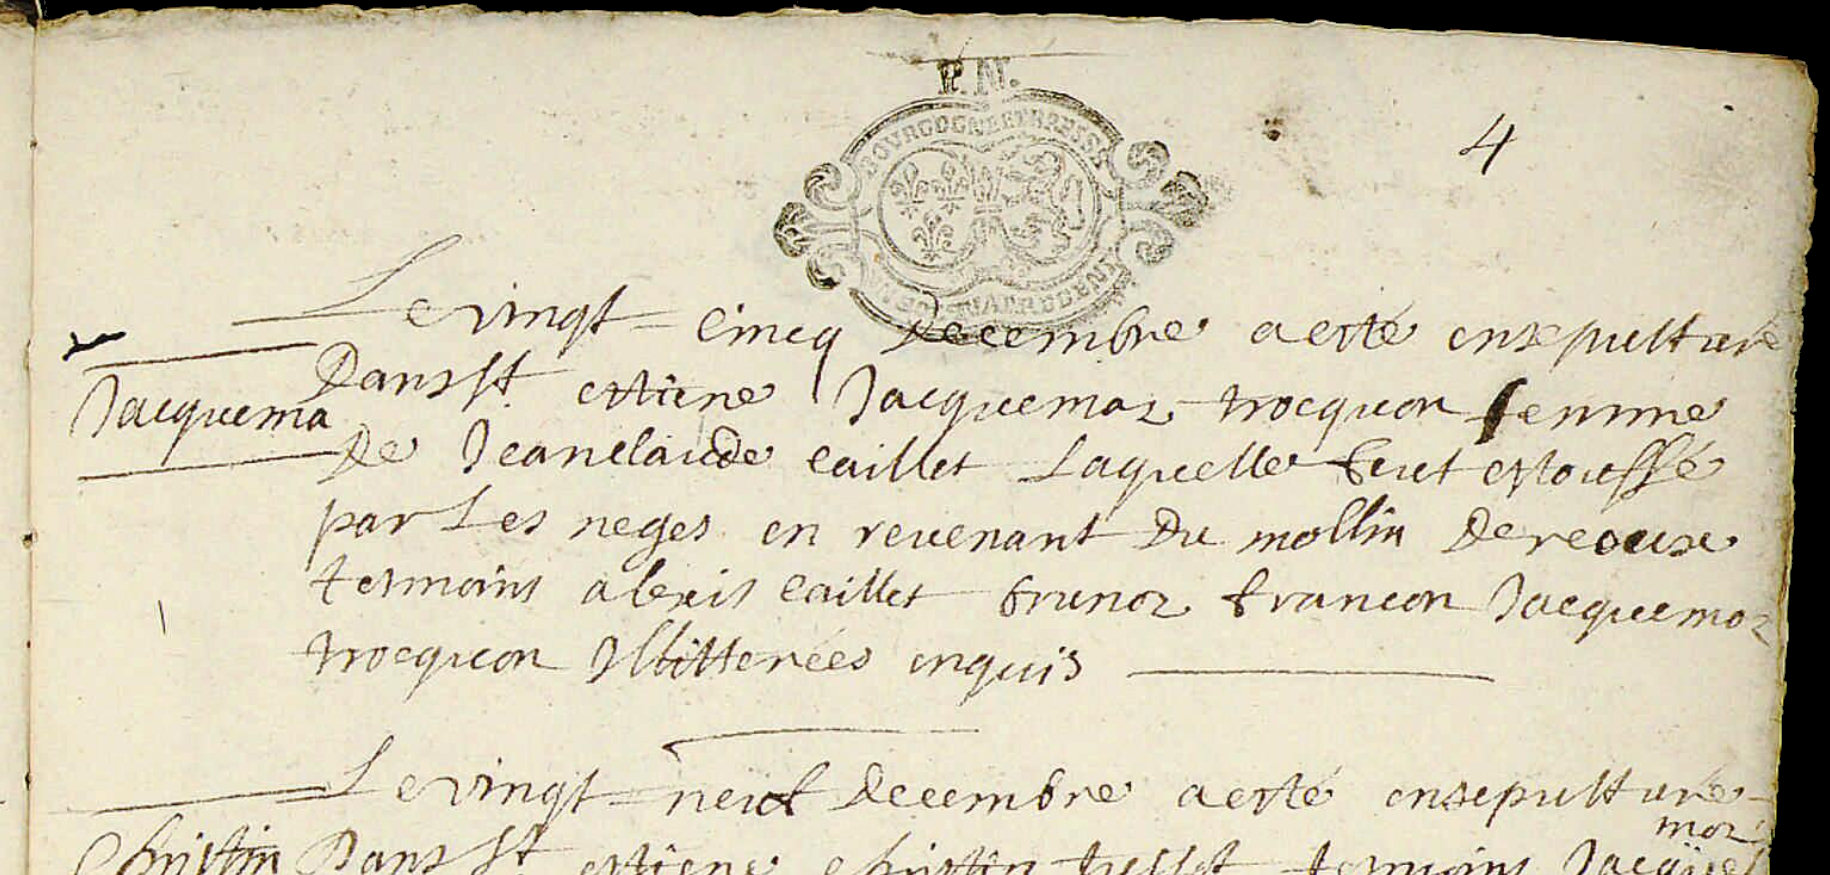 P. N.
BOURGOGNE ET BRESSE
4
Le vingt cincq Decembre a esté ensepulturé
Jacquema
Dans st. estiene Jacquemaz trocquon femme
De Jeanclaude Caillet Laquelle feut estouffé
par Les neges en revenant Du mollin De
tesmoins alexis Caillet brunoz francon Jacquemoz
trocquon Illitterées enquis
Le vingt neuf Decembre a esté ensepulturé
moz
Christin Dans St estiene christin tesmoins Jacque